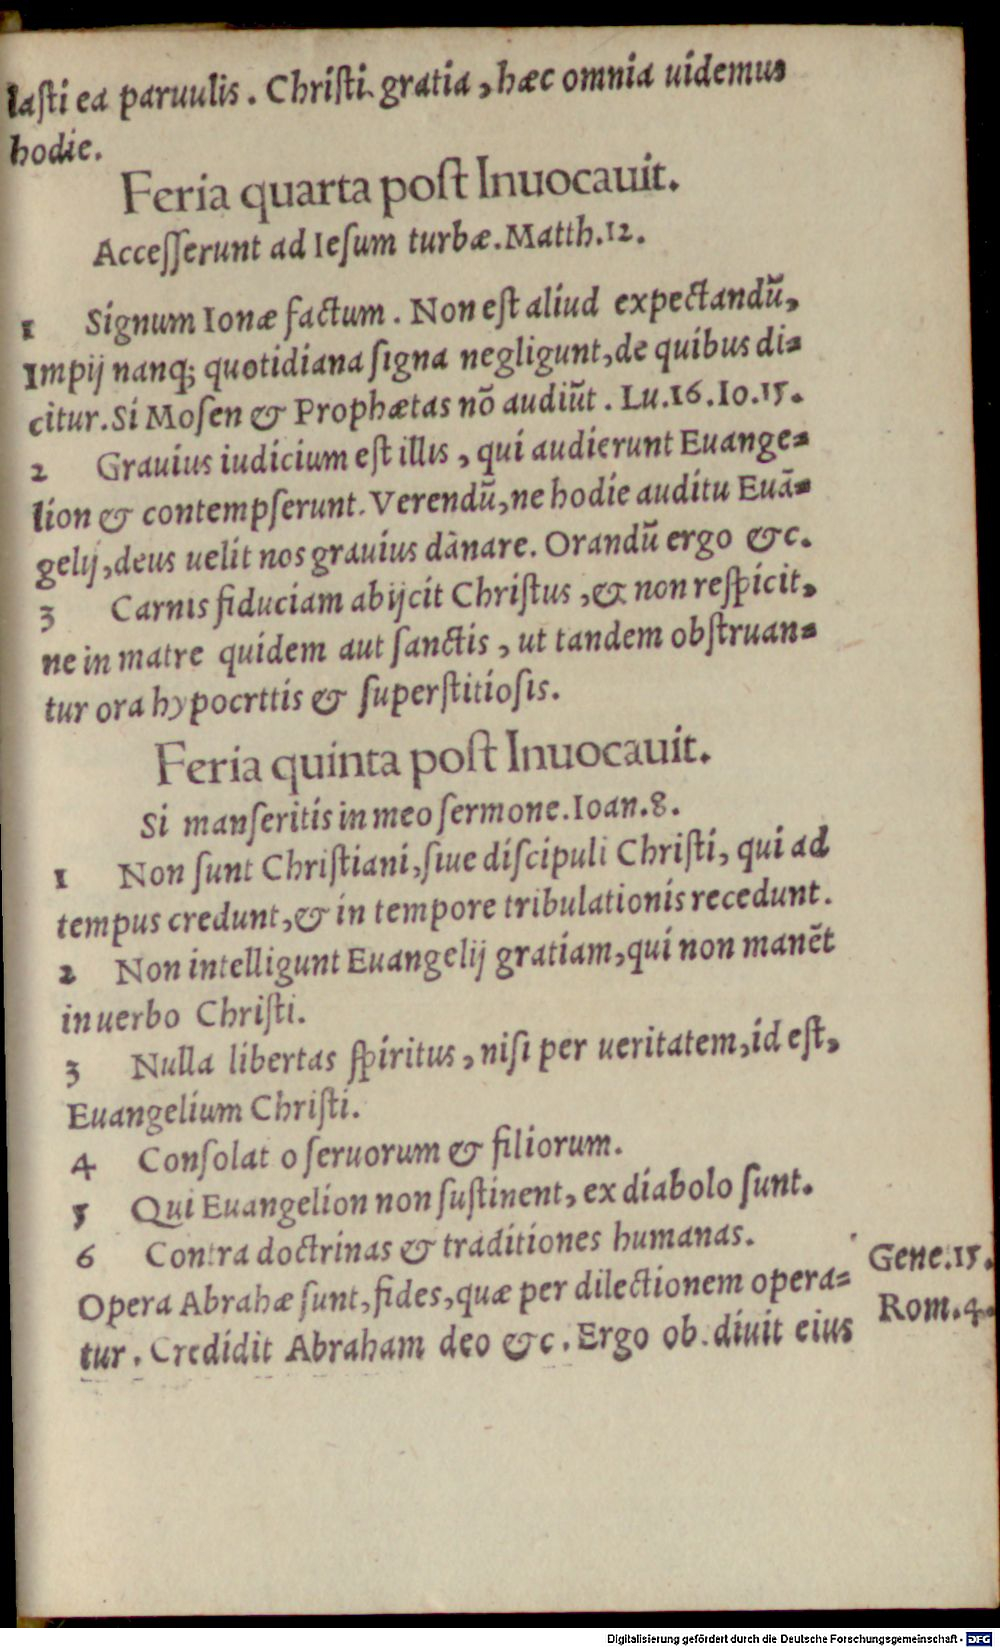 laſti ea paruulis. Chriſti gratia, hæc omnia uidemus
hodie.
Feria quarta poſt Inuocauit.
Acceſſerunt ad Ieſum turbæ. Matth.12.
1 Signum Ionæ factum. Non eſt aliud expectandũ,
Impij nanq; quotidiana ſigna negligunt, de quibus di=
citur. Si Moſen & Prophætas nõ audiũt. Lu.16. Io.15.
2 Grauius iudicium eſt illis, qui audierunt Euange=
lion & contempſerunt. Verendũ, ne hodie auditu Euã=
gelij, deus uelit nos grauius dãnare. Orandũ ergo &c.
3 Carnis fiduciam abijcit Chriſtus, & non reſpicit,
ne in matre quidem aut ſanctis, ut tandem obſtruan=
tur ora hypocrttis & ſuperſtitioſis.
Feria quinta poſt Inuocauit.
Si manſeritis in meo ſermone. Ioan.8.
1 Non ſunt Chriſtiani, ſiue diſcipuli Chriſti, qui ad
tempus credunt, & in tempore tribulationis recedunt.
2 Non intelligunt Euangelij gratiam, qui non manẽt
in uerbo Chriſti.
3 Nulla libertas ſpiritus, niſi per ueritatem, id eſt,
Euangelium Chriſti.
4 Conſolat o ſeruorum & filiorum.
5 Qui Euangelion non ſuſtinent, ex diabolo ſunt.
6 Contra doctrinas & traditiones humanas.
Opera Abrahæ ſunt, fides, quæ per dilectionem opera=
tur. Credidit Abraham deo &c. Ergo ob.diuit eius
Gene.15.
Rom.4.
Digitalisierung gefördert durch die Deutsche Forschungsgemeinschaft - DFG